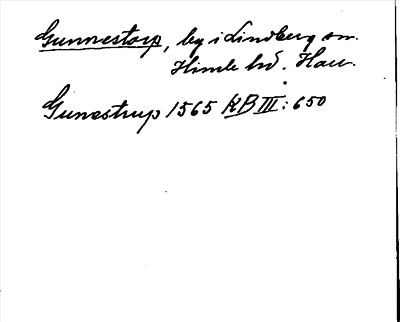 Gunnestorp, by i Lindberg sn.
Himle hd. Hall.
Gunestrup 1565 KB III: 650